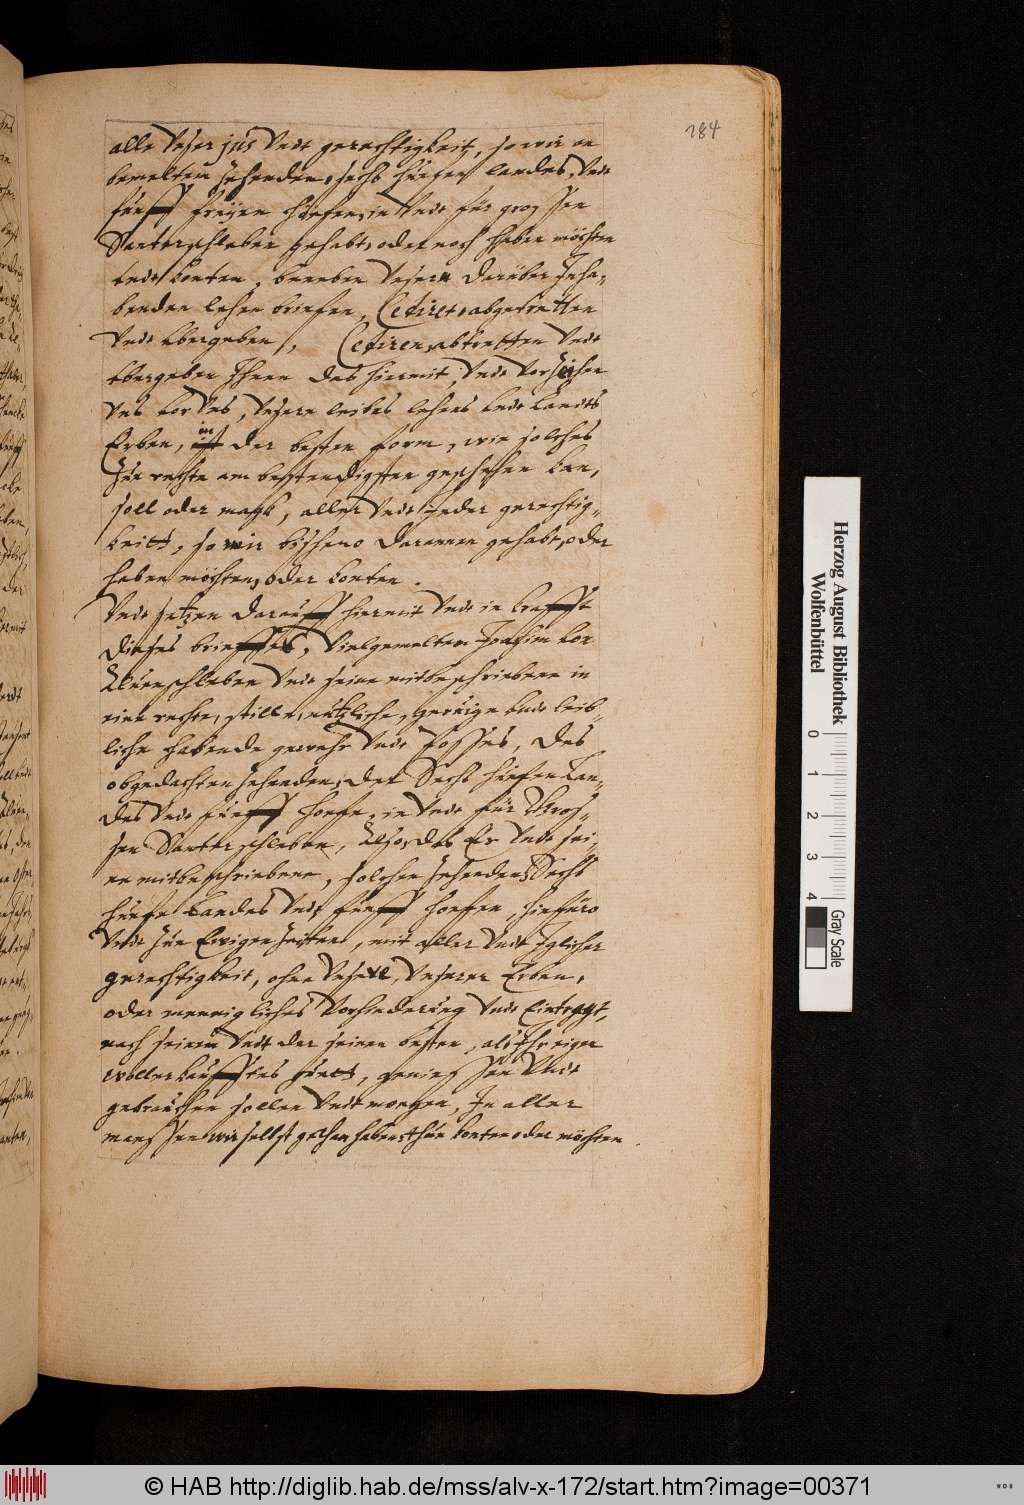 184
alle Unser jus Undt gerechtigkeitt, so wir an
bemeltem Zehenden, sechs huefen landes, Undt
fünff freyen höefen, in Undt für grossen
Santersschleben gehabt, oder noch haben möchten
undt konten, beneben Unsern darüber Inha-
benden lehen briefen, Cediret, abgetretten
Undt übergeben, Cediren, abtretten Undt
übergeben Ihnen das hiermit, Undt
Uns vor Uns, Unsere leibes lehens undt landts
Erben, in der besten form, wie solches
Zue rechte am bestendigsten geschehen kan,
soll oder magk, aller Undt jeder gerechtig-
keitt, so wir bishero daranne gehabt, oder
haben möchten, oder konten.
Undt setzen darauff hiermit Undt in krafft
dieses brieffes, Vielgemelten Joachim von
Alvenschleben Undt seine mitbeschriebene in
eine rechte, stille, nützliche, geruige undt leib-
liche habende gewehr Undt Posses, des
obgedachten Zehenden, der Sechs huefen Lan-
des Undt fünff hoefe, in Undt für Gros-
sen Santersschleben, Also, das Er Undt sei-
ne mitbeschriebene, solchen Zehenden, Sechs
huefe Landes Undt fünff hoefen, hinfuro
Undt Zue Ewigen Zeitten, mit aller Undt Iglicher
gerechtigkeit, ohne Unsere, Unserer Erben,
oder menniglichs Vorhinderung Undt Eintragt,
nach seinem Undt der seinen besten, als Ihr eigen
wollerkaufftes guett, geniessen Undt
gebrauchen sollen Undt mogen, In aller
massen wir selbst gethan haben, thun konten oder möchten.
Herzog August Bibliothek
Wolfenbüttel
0 1 2 3 4
Gray Scale
© HAB http://diglib.hab.de/mss/alv-x-172/start.htm?image=00371